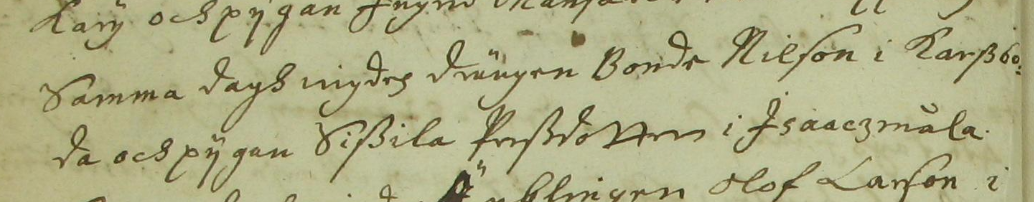 Karÿ och pÿgan Ingrid
Samma dagh wigdes drängen Bonde Nilson i Karßbo:
da och pÿgan Sißila Perßdotter i Isaaczmåla.
Ynglingen Olof Larson i